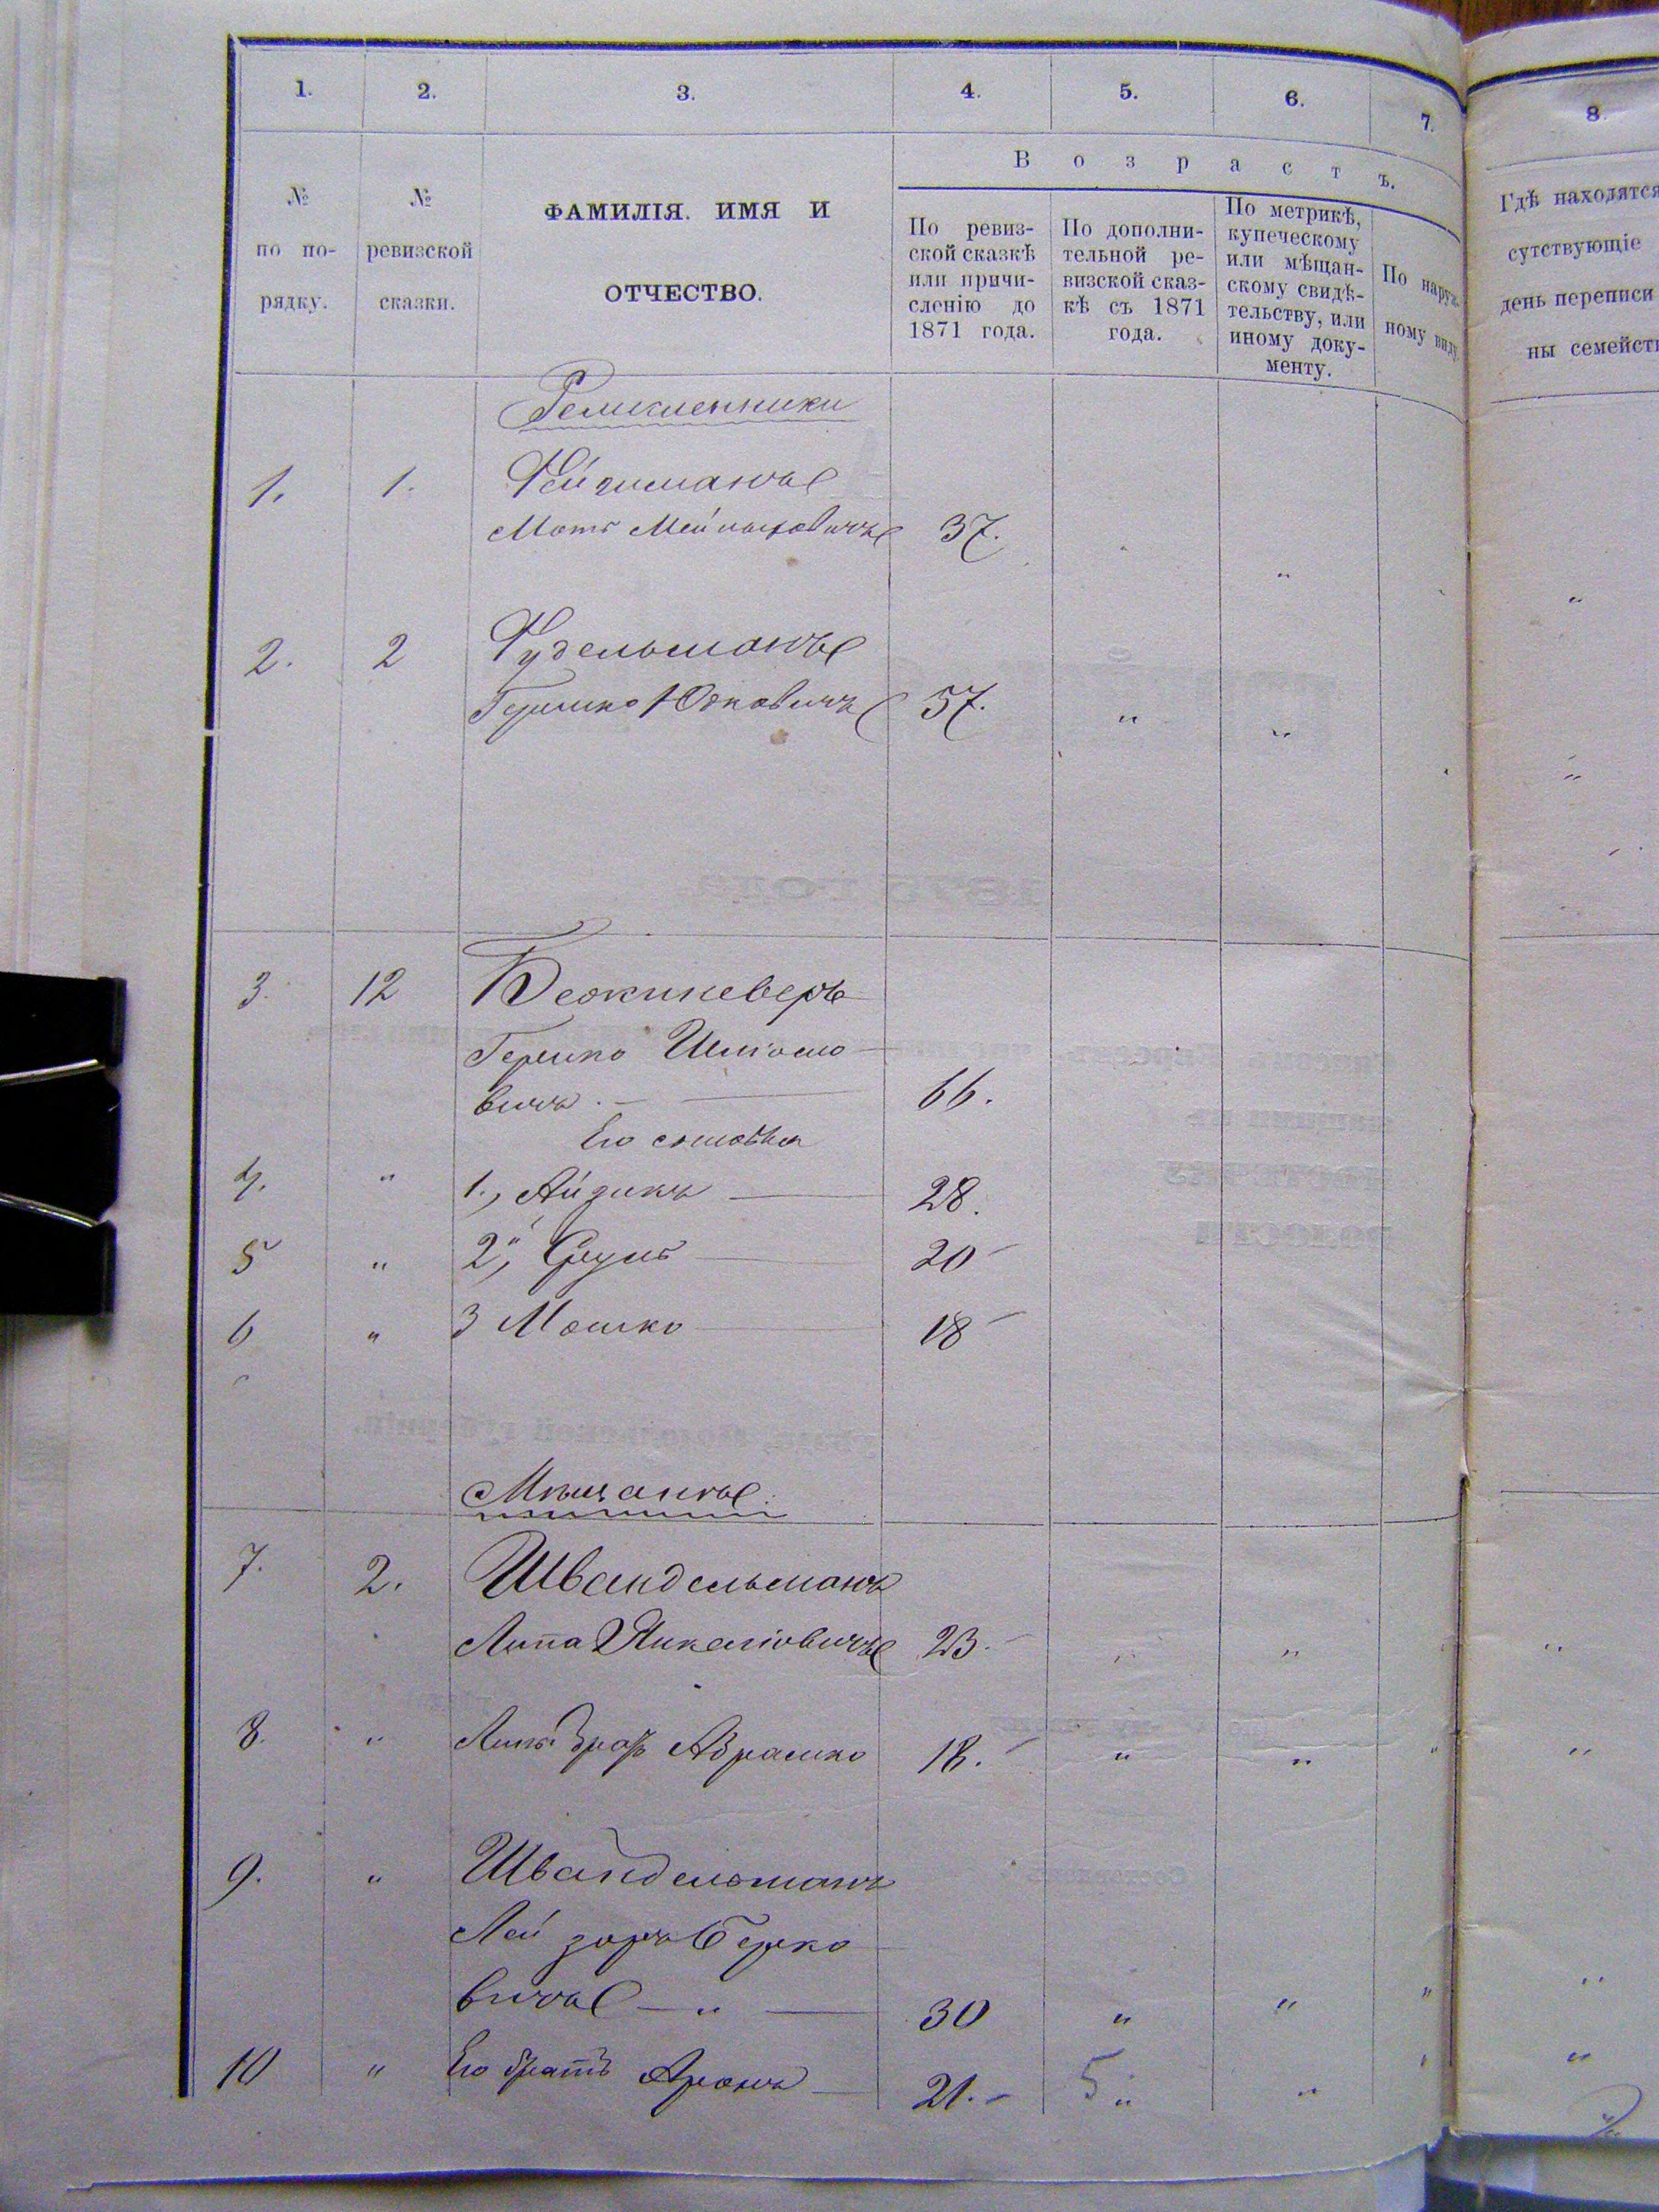 1. 2. 3. 4. 5. 6. 7. 8.
Возрастъ.
№ по по-рядку.
№ ревизской сказки.
ФАМИЛІЯ. ИМЯ И
ОТЧЕСТВО.
По ревиз-
ской сказкѣ
или причи-
сленію до
1871 года.
По дополни-
тельной ре-
визской сказ-
кѣ съ 1871
года.
По метрикѣ,
купеческому
или мѣщан-
скому свидѣ-
тельству, или
иному доку-
менту.
По наруж-
ному виду.
Гдѣ находятся
сутствующіе
день переписи
ны семейст
Ремисленники
1. 1.
Мот 37.
2. 2 Фудельманъ
Гершко Юдковичъ 57.
3. 12
Гершко
вичъ. 66.
Его сыновья
4. " 1., Айзикъ 28.
5 " 2, Сруль 20
6 " 3 Мошко 18
Мѣщане.
7. 2. Швандельманъ
Липа 23.
8. " братъ Абрамко 18. " "
9. " Швандельманъ
Лейзоръ Берко
вичъ 30 " "
10 " Его братъ Аронъ 21. 5 " "